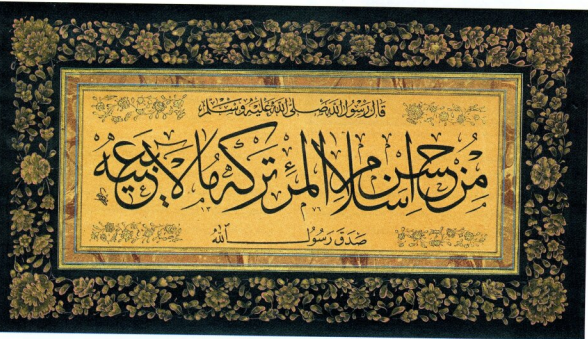 قَالَ رَسُولُ اللّٰهِ صَلَّى اللّٰهُ عَلَيْهِ وَسَلَّمَ
مِنْ حُسْنِ اِسْلَامِ الْمَرْءِ تَرْكُهُ مَا لَا يَعْنِيهِ
صَدَقَ رَسُولُ اللّٰهِ